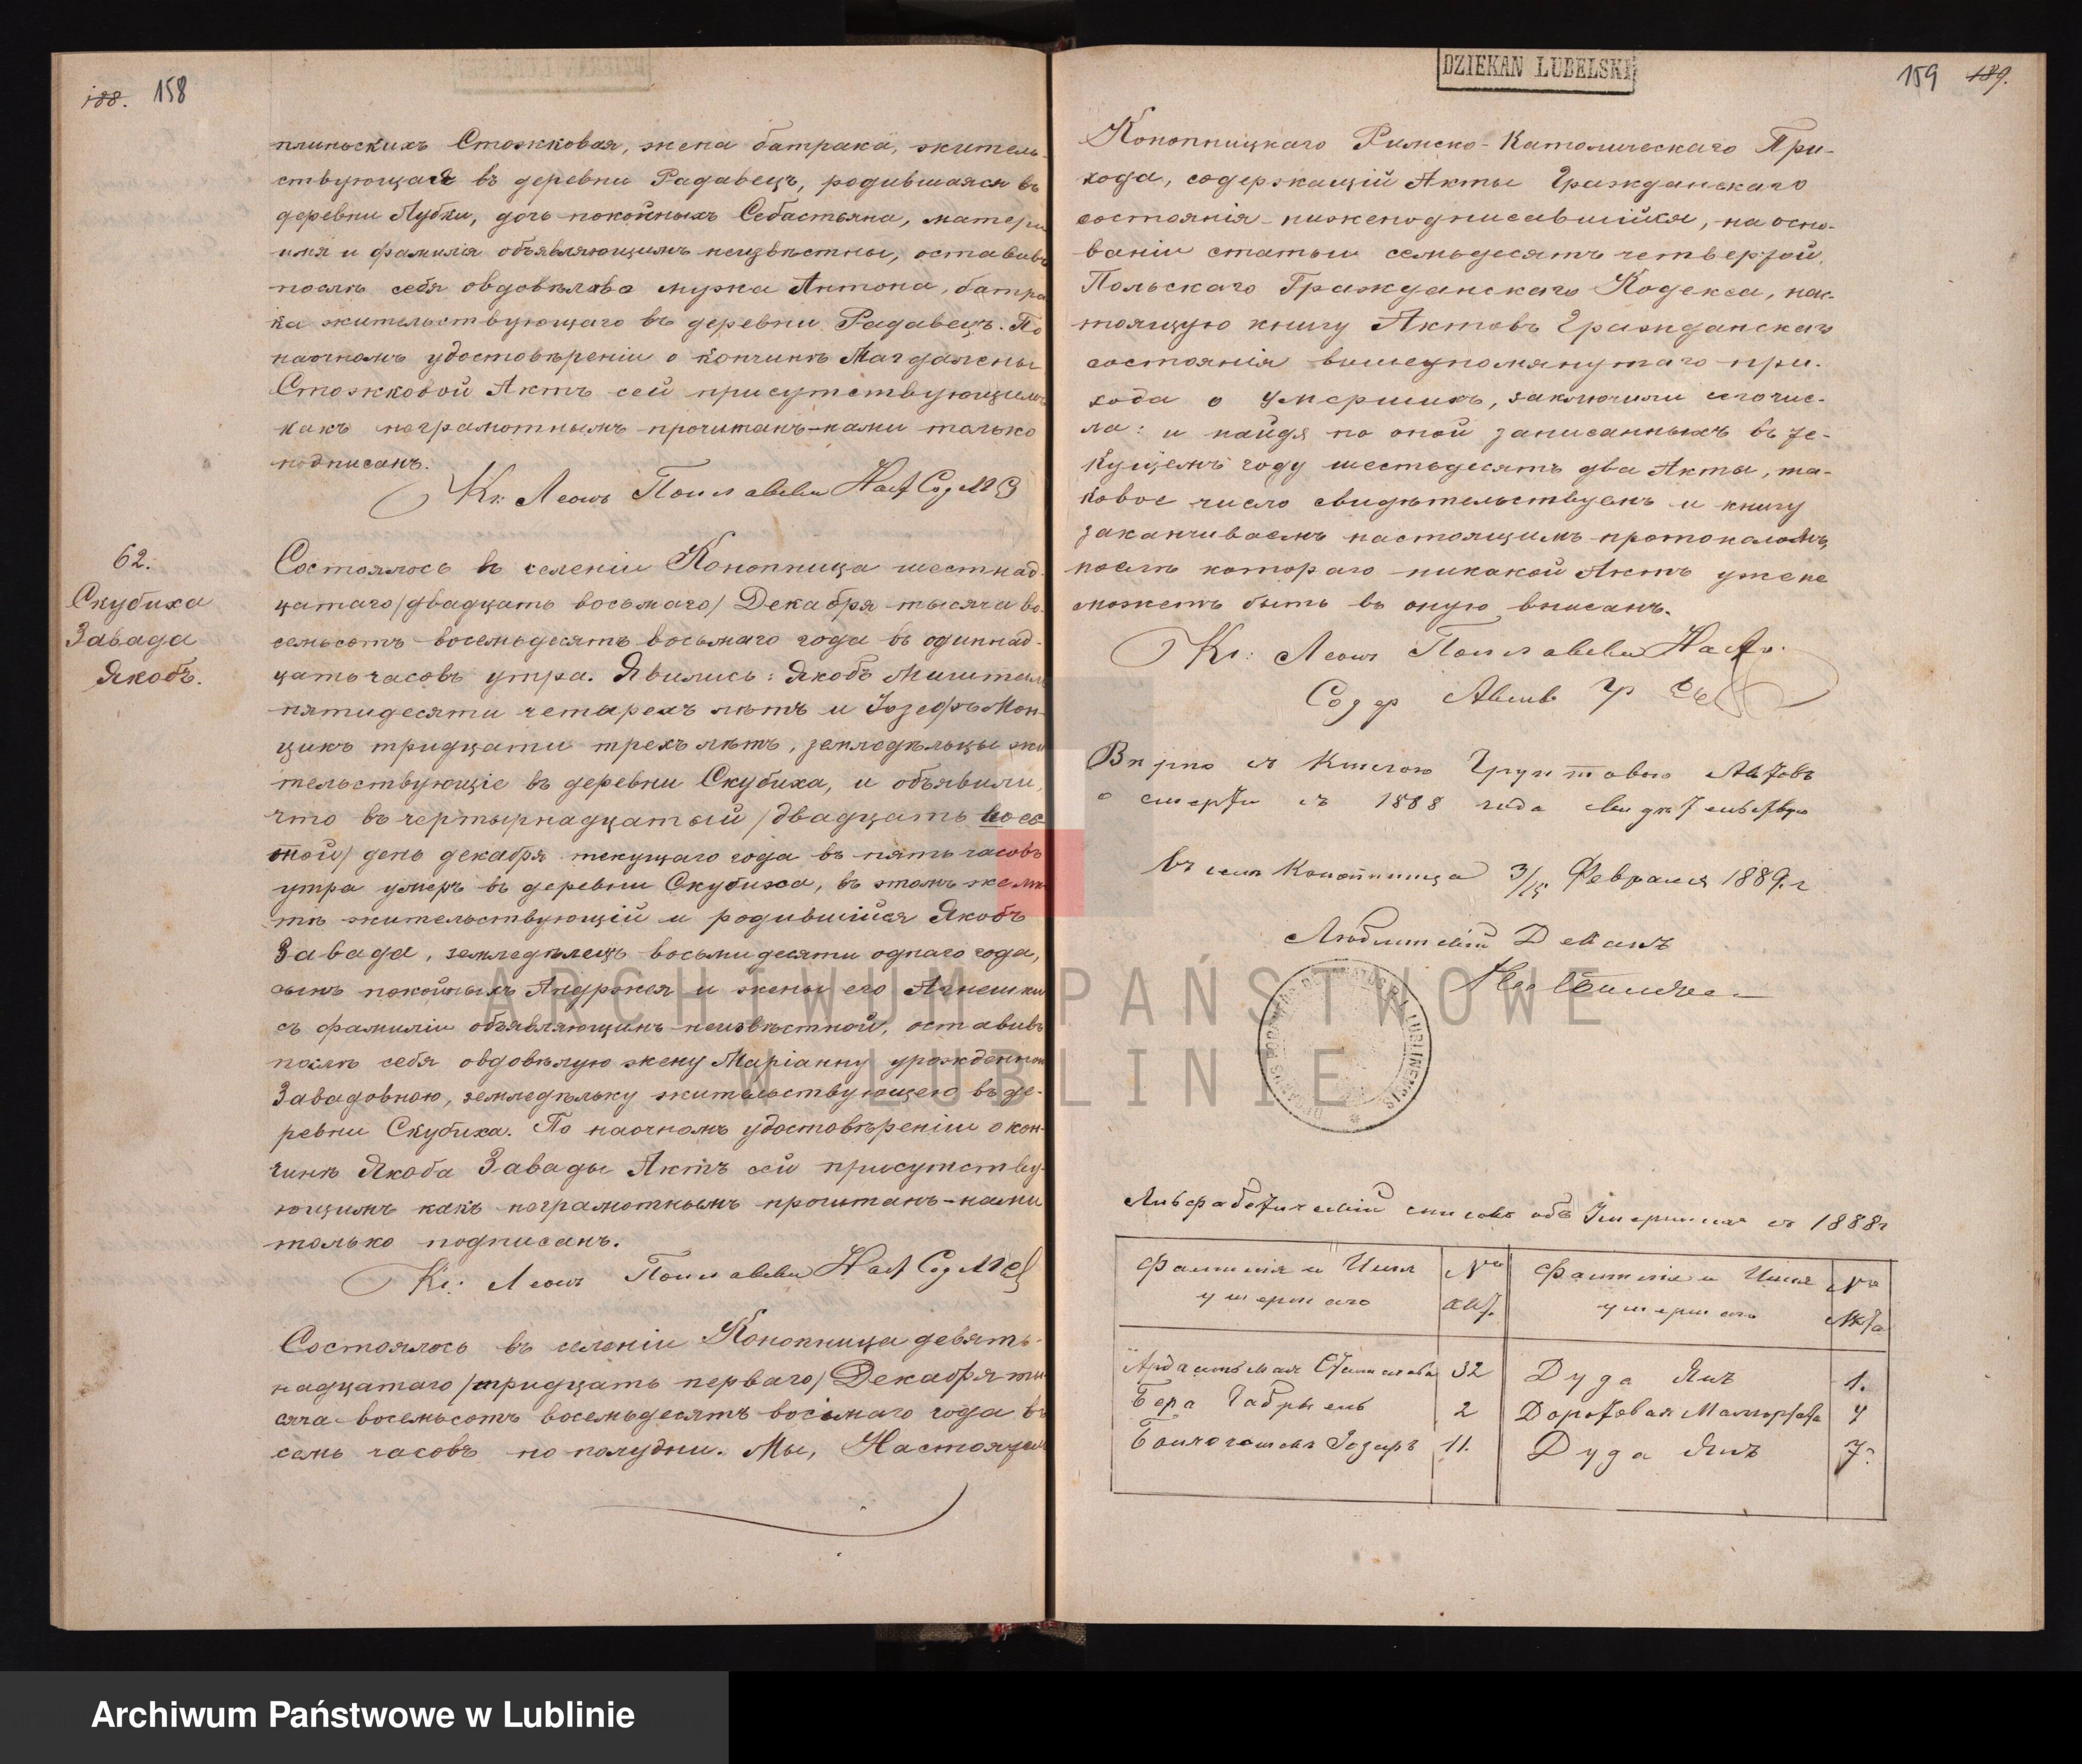 188. 158
плинскихъ Стожковая, жена батрака, житель-
ствующая въ деревни Радавецъ, родившаяся въ
деревни Лубки, дочь покойныхъ Себастьяна, матери
имя и фамилія объявляющимъ неизвѣстны, оставивъ
послѣ себя овдовѣлаво мужа Антона, батра
ка жительствующаго въ деревни Радавецъ. По
наочномъ удостовѣреніи о кончинѣ Магдалены
Стожковой Актъ сей присутствующимъ
какъ неграмотнымъ прочитанъ-нами только
подписанъ.
Кс Леонъ Наст Сод
62.
Скубиха
Завада
Якобъ.
Состоялось въ селеніи Конопница шестнад-
цатаго /двадцать восьмаго/ Декабря тысяча во-
семьсотъ восемьдесятъ восьмаго года въ одиннад-
цать часовъ утра. Явились: Якобъ
пятидесяти четырехъ лѣтъ и Іозефъ Мон-
цикъ тридцати трехъ лѣтъ, земледѣльцы жи
тельствующіе въ деревни Скубиха, и объявили,
что въ чертырнадцатый /двадцать вось-
мой/ день декабря текущаго года въ пять часовъ
утра умеръ въ деревни Скубиха, въ этомъ же мѣ-
тѣ жительствующій и родившійся Якобъ
Завада, земледѣлецъ восьмидесяти однаго года,
сынъ покойныхъ Андржея и жены его Агнешки
съ фамиліи объявляющимъ неизвѣстной, оставивъ
послѣ себя овдовѣлую жену Маріанну урожденною
Завадовною, земледѣльку жительствующею въ де-
ревни Скубиха. По наочномъ удостовѣреніи о кон-
чинѣ Якоба Завады Актъ сей присутству-
ющимъ какъ неграмотнымъ прочитанъ-нами
только подписанъ.
Кс: Леонъ Наст Сод
Состоялось въ селеніи Конопница девять-
надцатаго /тридцать перваго/ Декабря ты-
сяча восемьсотъ восемьдесятъ восьмаго года въ
семь часовъ по полудни. Мы, Настоятель
DZIEKAN LUBELSKI
159 189.
Конопницкаго Римско-Католическаго При-
хода, содержащій Акты Гражданскаго
состоянія нижеподписавшійся, на осно-
ваніи статьи семьдесятъ четвертой,
Польскаго Гражданскаго Кодекса, нас-
тоящую книгу Актовъ Гражданскаго
состоянія вышеупомянутаго при-
хода о умершихъ, заключили сегочис-
ла: и найдя по оной записанныхъ въ те-
кущемъ году шестьдесятъ два Акты, та-
ковое число свидѣтельствуемъ и книгу
заканчиваемъ настоящимъ протоколомъ,
послѣ котораго никакой Актъ уже не
можетъ быть въ оную вписанъ.
Кс: Леонъ Наст.
Содер Актовъ Гр Со
Вѣрно съ Книгою Грунтовою Актовъ
о смерти съ 1888 года свидѣтельствую
въ селѣ Конопница 3/15 Февраля 1889 г
Люблинскій Деканъ
LUBLINENSIS
Альфабетическій списокъ объ Умершихъ съ 1888 г
Фамилія и Имя умершаго № акт. Фамилія и Имя умершаго № Акта
32 Дуда Янъ 1.
Бера Габрыель 2 4
Іозефъ 11. Дуда Янъ 7.
ARCHIWUM PAŃSTWOWE
W LUBLINIE
Archiwum Państwowe w Lublinie